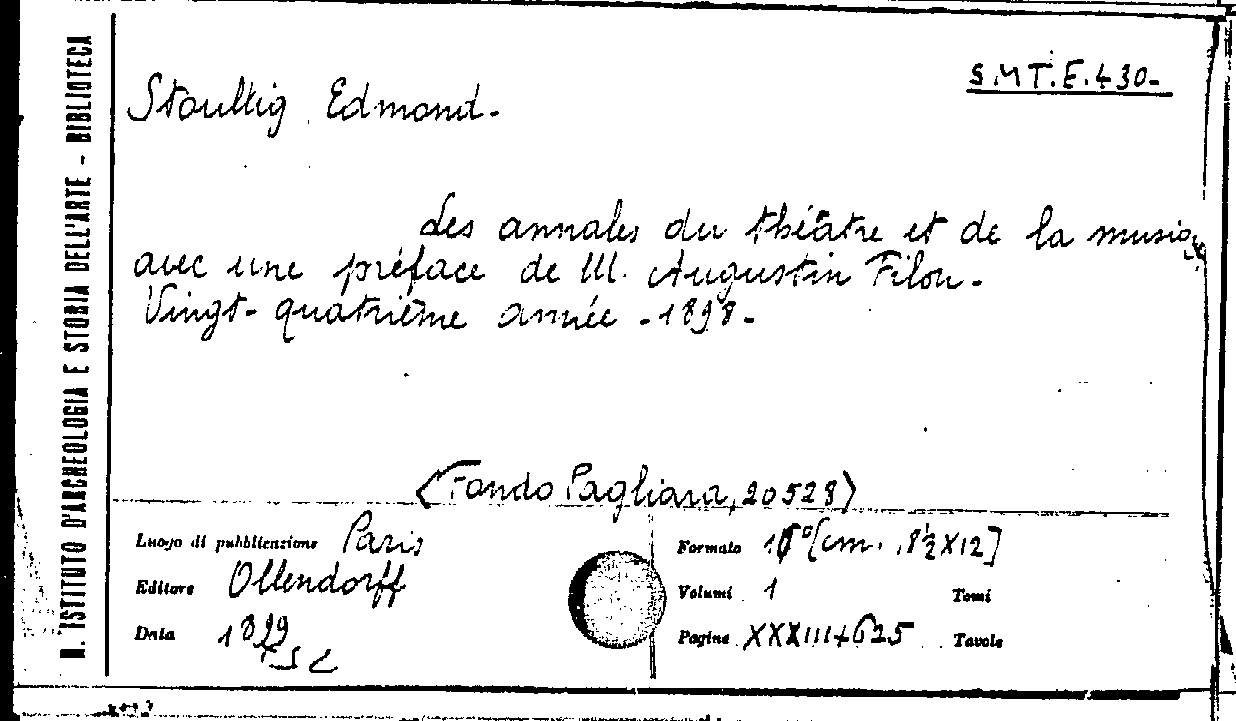 S.M T.E.430-
Stoullig Edmond.
Les annales du théâtre et de la musiq
avec une préface de M. Augustin Filon.
Vingt-quatrième année - 1898 -
(Fondo Pagliara, 20528)
Luogo di pubblicazione Paris
Editore Ollendorff
Data 1899
Formato 16° [cm. 18½ X 12]
Volumi 1 Tomi
Pagine XXXIII+625 Tavole
R. ISTITUTO D'ARCHEOLOGIA E STORIA DELL'ARTE - BIBLIOTECA